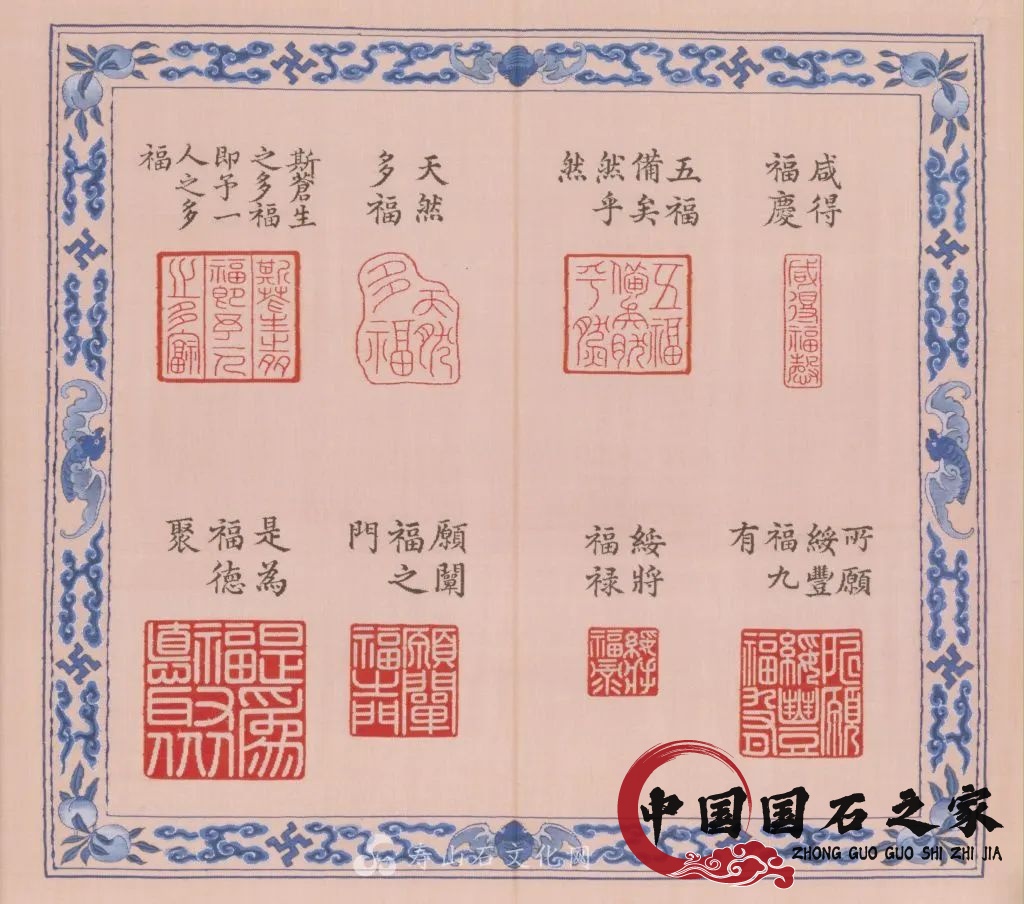 咸得
福慶
五福
備矣
然乎
然
天然
多福
斯蒼生
之多福
即予一
人之多
福
咸得福慶
五福
備矣然
乎然
天然
多福
斯蒼生之多
福即予一人
之多福
所願
綏豐
福九
有
綏將
福禄
願闡
福之
門
是為
福德
聚
所願
綏豐
福九有
綏將
福禄
願闡
福之門
是為
福
德聚
中国国石之家
ZHONG GUO GUO SHI ZHI JIA
寿山石文化网